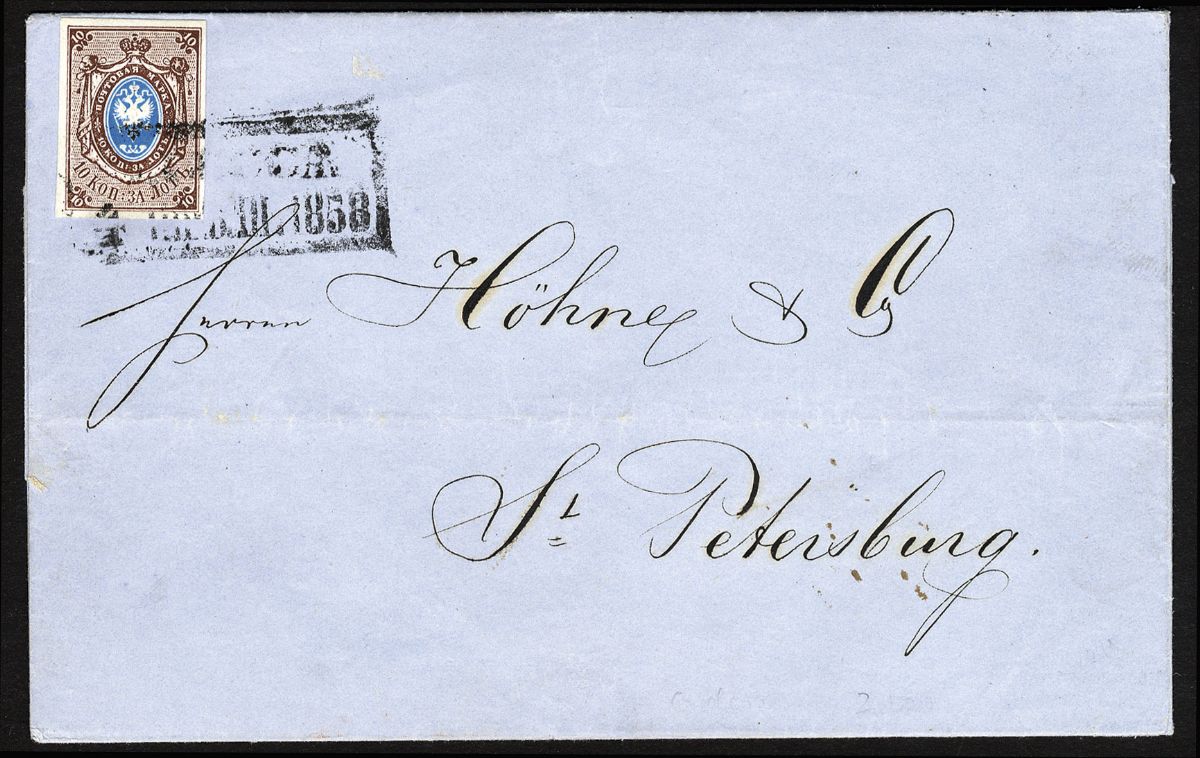 10 10
ПОЧТОВАЯ МАРКА
10 КОП: ЗА ЛОТЪ
10 КОП: ЗА ЛОТЪ.
10 10
1858
Herren Höhne & Co
St. Petersburg.